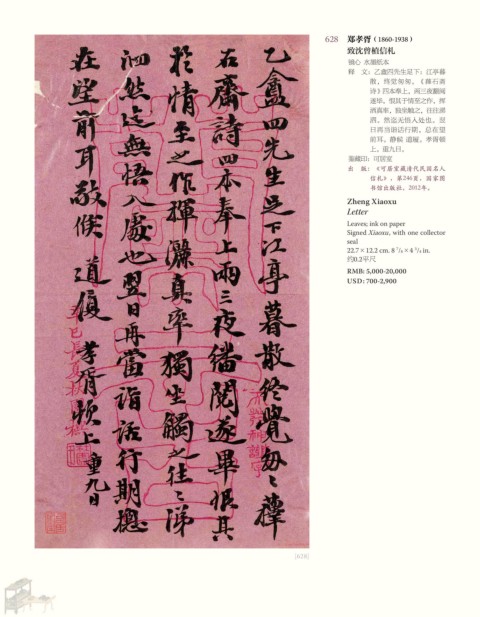 乙盦四先生足下江亭暮散終覺匆〻蘀
石齋詩四本奉上兩三夜繙閱遂畢恨其
於情至之作揮灑真率獨坐觸之往〻涕
泗然迄無悟入處也翌日再當詣話行期總
在望前耳敬候 道履 孝胥頓上 重九日
628 郑孝胥（1860-1938）
致沈曾植信札
镜心 水墨纸本
释 文：乙盦四先生足下：江亭暮
散，终觉匆匆，《蘀石斋
诗》四本奉上，两三夜翻阅
遂毕，恨其于情至之作，挥
洒真率，独坐触之，往往涕
泗，然迄无悟入处也。翌
日再当诣话行期，总在望
前耳。静候 道履，孝胥顿
上，重九日。
鉴藏印：可居室
出 版：《可居室藏清代民国名人
信札》，第246页，国家图
书馆出版社，2012年。
Zheng Xiaoxu
Letter
Leaves; ink on paper
Signed Xiaoxu, with one collector
seal
22.7 × 12.2 cm. 8 7/8 × 4 3/4 in.
约0.2平尺
RMB: 5,000-20,000
USD: 700-2,900
[628]